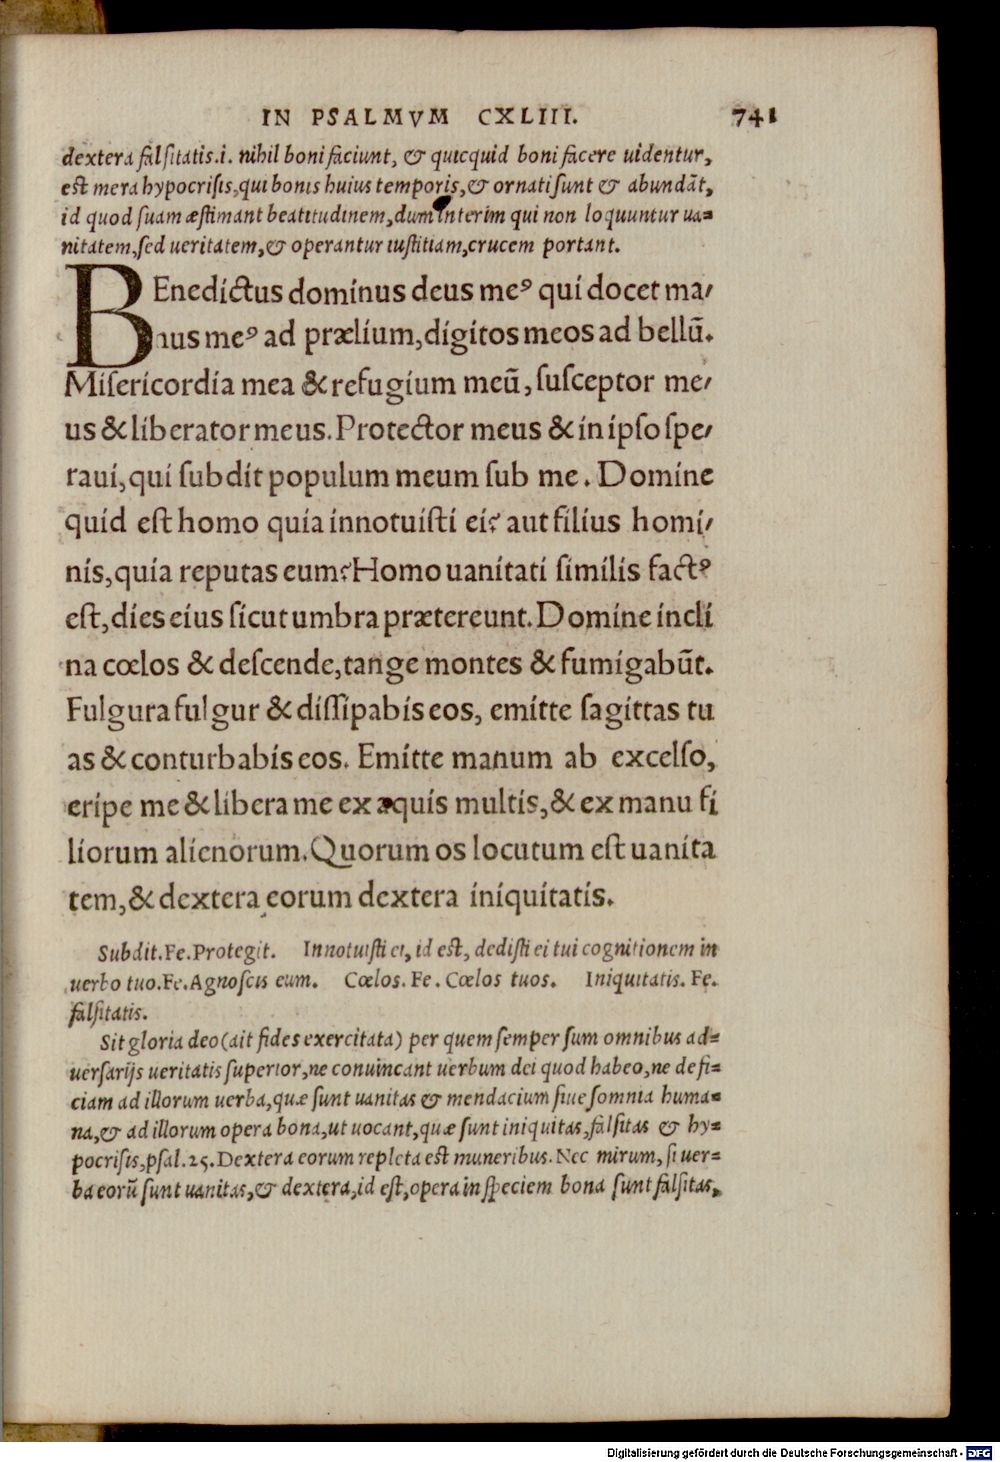 IN PSALMVM CXLIII. 741
dextera falsitatis.i. nihil boni faciunt, & quicquid boni facere uidentur,
est mera hypocrisis, qui bonis huius temporis, & ornati sunt & abundãt,
id quod suam æstimant beatitudinem, dum interim qui non loquuntur ua=
nitatem, sed ueritatem, & operantur iustitiam, crucem portant.
BEnedictus dominus deus meꝰ qui docet ma/
nus meꝰ ad prælium, digitos meos ad bellũ.
Misericordia mea & refugium meũ, susceptor me/
us & liberator meus. Protector meus & in ipso spe/
raui, qui subdit populum meum sub me. Domine
quid est homo quia innotuisti ei? aut filius homi/
nis, quia reputas eum? Homo uanitati similis factꝰ
est, dies eius sicut umbra prætereunt. Domine incli
na cœlos & descende, tange montes & fumigabũt.
Fulgura fulgur & dissipabis eos, emitte sagittas tu
as & conturbabis eos. Emitte manum ab excelso,
eripe me & libera me ex aquis multis, & ex manu fi
liorum alienorum. Quorum os locutum est uanita
tem, & dextera eorum dextera iniquitatis.
Subdit. Fe. Protegit. Innotuisti ei, id est, dedisti ei tui cognitionem in
uerbo tuo. Fe. Agnoscis eum. Cœlos. Fe. Cœlos tuos. Iniquitatis. Fe.
falsitatis.
Sit gloria deo (ait fides exercitata) per quem semper sum omnibus ad=
uersarijs ueritatis superior, ne conuincant uerbum dei quod habeo, ne defi=
ciam ad illorum uerba, quæ sunt uanitas & mendacium siue somnia huma=
na, & ad illorum opera bona, ut uocant, quæ sunt iniquitas, falsitas & hy=
pocrisis, psal. 25. Dextera eorum repleta est muneribus. Nec mirum, si uer=
ba eorũ sunt uanitas, & dextera, id est, opera in speciem bona sunt falsitas,
Digitalisierung gefördert durch die Deutsche Forschungsgemeinschaft - DFG